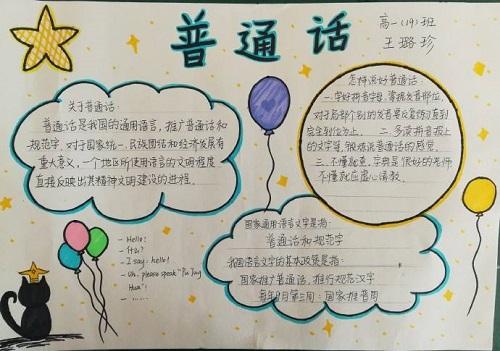 普通话
高一(19)班
王璐珍
关于普通话:
普通话是我国的通用语言,推广普通话和
规范字,对于国家统一、民族团结和经济发展有
重大意义,一个地区所使用语言的文明程度
直接反映出其精神文明建设的进程。
怎样说好普通话:
一.学好拼音字母,掌握发音部位,
对于局部个别的发音要反复练习直到
完全到位为止。 二.多读拼音报上
的文字等,锻炼说普通话的感觉。
三.不懂就查,字典是很好的老师
不懂就应虚心请教。
- Hello!
- I say: hello!
- Uh, please speak "Pu Tong
Hua"!
- ......
国家通用语言文字是指:
普通话和规范字
我国语言文字的基本政策是指:
国家推广普通话,推行规范汉字
每年9月第三周:国家推普周